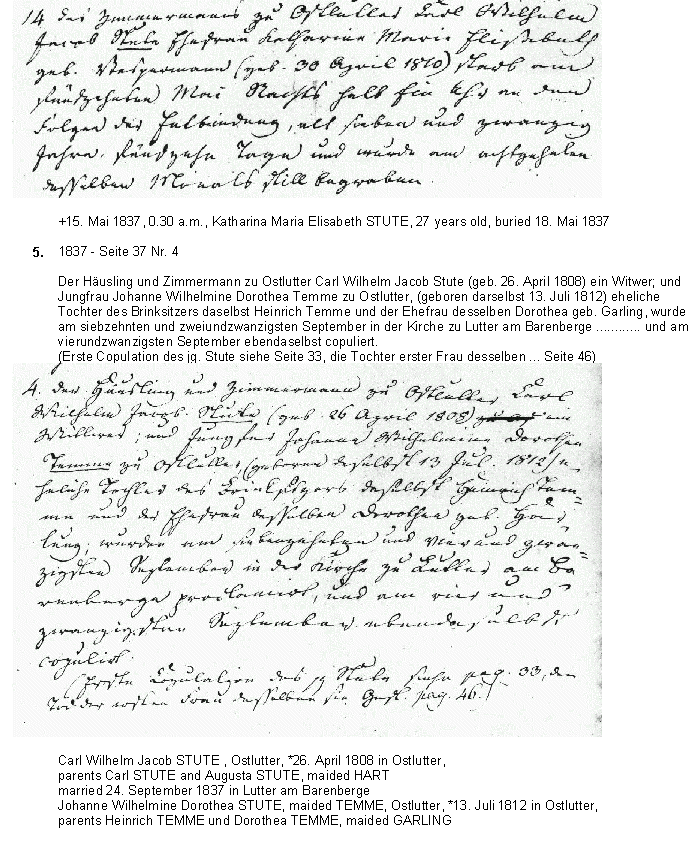 14 des Zimmermanns zu Ostlutter Carl Wilhelm
Jacob Stute Ehefrau Katharine Marie Elisabeth
geb. Vespermann (geb. 30 April 1810) starb am
fünfzehnten Mai Nachts halb Ein Uhr an den
Folgen der Entbindung, alt sieben und zwanzig
Jahre, fünfzehn Tage und wurde am achtzehnten
desselben Monats still begraben.
+15. Mai 1837, 0.30 a.m., Katharina Maria Elisabeth STUTE, 27 years old, buried 18. Mai 1837
5. 1837 - Seite 37 Nr. 4
Der Häusling und Zimmermann zu Ostlutter Carl Wilhelm Jacob Stute (geb. 26. April 1808) ein Witwer; und
Jungfrau Johanne Wilhelmine Dorothea Temme zu Ostlutter, (geboren darselbst 13. Juli 1812) eheliche
Tochter des Brinksitzers daselbst Heinrich Temme und der Ehefrau desselben Dorothea geb. Garling, wurde
am siebzehnten und zweiundzwanzigsten September in der Kirche zu Lutter am Barenberge ............ und am
vierundzwanzigsten September ebendaselbst copuliert.
(Erste Copulation des jg. Stute siehe Seite 33, die Tochter erster Frau desselben ... Seite 46)
4. der Häusling und Zimmermann zu Ostlutter Carl
Wilhelm Jacob Stute (geb. 26 April 1808) ein
Wittwer; und Jungfer Johanne Wilhelmine Dorothee
Temme zu Ostlutter, (geboren daselbst 13 Jul. 1812) e=
heliche Tochter des Brinksitzers daselbst Heinrich Tem=
me und der Ehefrau desselben Dorothee geb.
wurden am siebenzehnten und vierund zwan=
zigsten September in der Kirche zu Lutter am Ba
renberge proclamirt, und am vier und
zwanzigsten September ebendaselbst
copulirt.
(Erste Copulation des jg Stute siehe pag. 33, den
Tod der ersten Frau desselben pag. 46.)
Carl Wilhelm Jacob STUTE , Ostlutter, *26. April 1808 in Ostlutter,
parents Carl STUTE and Augusta STUTE, maided HART
married 24. September 1837 in Lutter am Barenberge
Johanne Wilhelmine Dorothea STUTE, maided TEMME, Ostlutter, *13. Juli 1812 in Ostlutter,
parents Heinrich TEMME und Dorothea TEMME, maided GARLING